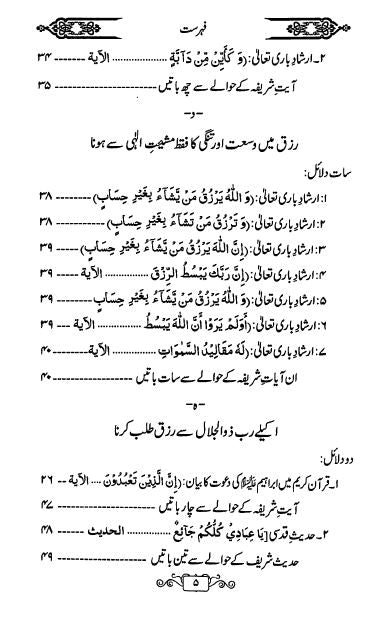 فہرست
۲۔ ارشادِ باری تعالیٰ: (وَ کَأَیِّنْ مِّنْ دَآبَّۃٍ ................. الآیۃ -------- ۳۴
آیتِ شریفہ کے حوالے سے چھ باتیں -------------------- ۳۵
-د-
رزق میں وسعت اور تنگی کا فقط مشیتِ الٰہی سے ہونا
سات دلائل:
۱: ارشادِ باری تعالیٰ: (وَ اللّٰہُ یَرْزُقُ مَنْ یَّشَآءُ بِغَیْرِ حِسَابٍ) --------- ۳۸
۲: ارشادِ باری تعالیٰ: (وَ تَرْزُقُ مَنْ تَشَآءُ بِغَیْرِ حِسَابٍ) --------- ۳۸
۳: ارشادِ باری تعالیٰ: (إِنَّ اللّٰہَ یَرْزُقُ مَنْ یَّشَآءُ بِغَیْرِ حِسَابٍ) ----- ۳۹
۴: ارشادِ باری تعالیٰ: (إِنَّ رَبَّکَ یَبْسُطُ الرِّزْقَ ................. الآیۃ ----- ۳۹
۵: ارشادِ باری تعالیٰ: (وَ اللّٰہُ یَرْزُقُ مَنْ یَّشَآءُ بِغَیْرِ حِسَابٍ --------- ۳۹
۶: ارشادِ باری تعالیٰ: (أَوَلَمْ یَرَوْا أَنَّ اللّٰہَ یَبْسُطُ ............ الآیۃ -- ۳۹
۷: ارشادِ باری تعالیٰ: (لَہٗ مَقَالِیْدُ السَّمٰوَاتِ ................ الآیۃ -------- ۴۰
ان آیاتِ شریفہ کے حوالے سے سات باتیں ---------------- ۴۰
-ہ-
اکیلے رب ذوالجلال سے رزق طلب کرنا
دو دلائل:
۱۔ قرآن کریم میں ابراہیم ﷺ کی دعوت کا بیان: (إِنَّ الَّذِیْنَ تَعْبُدُوْنَ .... الآیۃ -- ۲۶
آیت شریفہ کے حوالے سے چار باتیں ------------------ ۴۷
۲۔ حدیثِ قدسی [یَا عِبَادِيْ کُلُّکُمْ جَآئِعٌ ................ الحدیث ----- ۴۸
حدیث شریف کے حوالے سے تین باتیں ------------------ ۴۹
۵